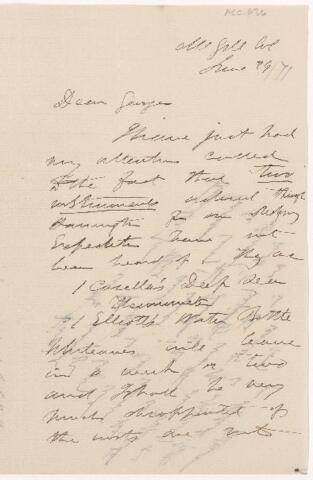 McGill Col
June 29/71
Dear George
I have just had
my attention called
to the fact that two
instruments ordered through
for our
Expedition have not
been heard of. They are
1 Casella's Deep Sea
Thermometer
1 Elliott's Water Bottle
Whiteaves will leave
in a week or two
and I shall be very
much disappointed if
the insts are not